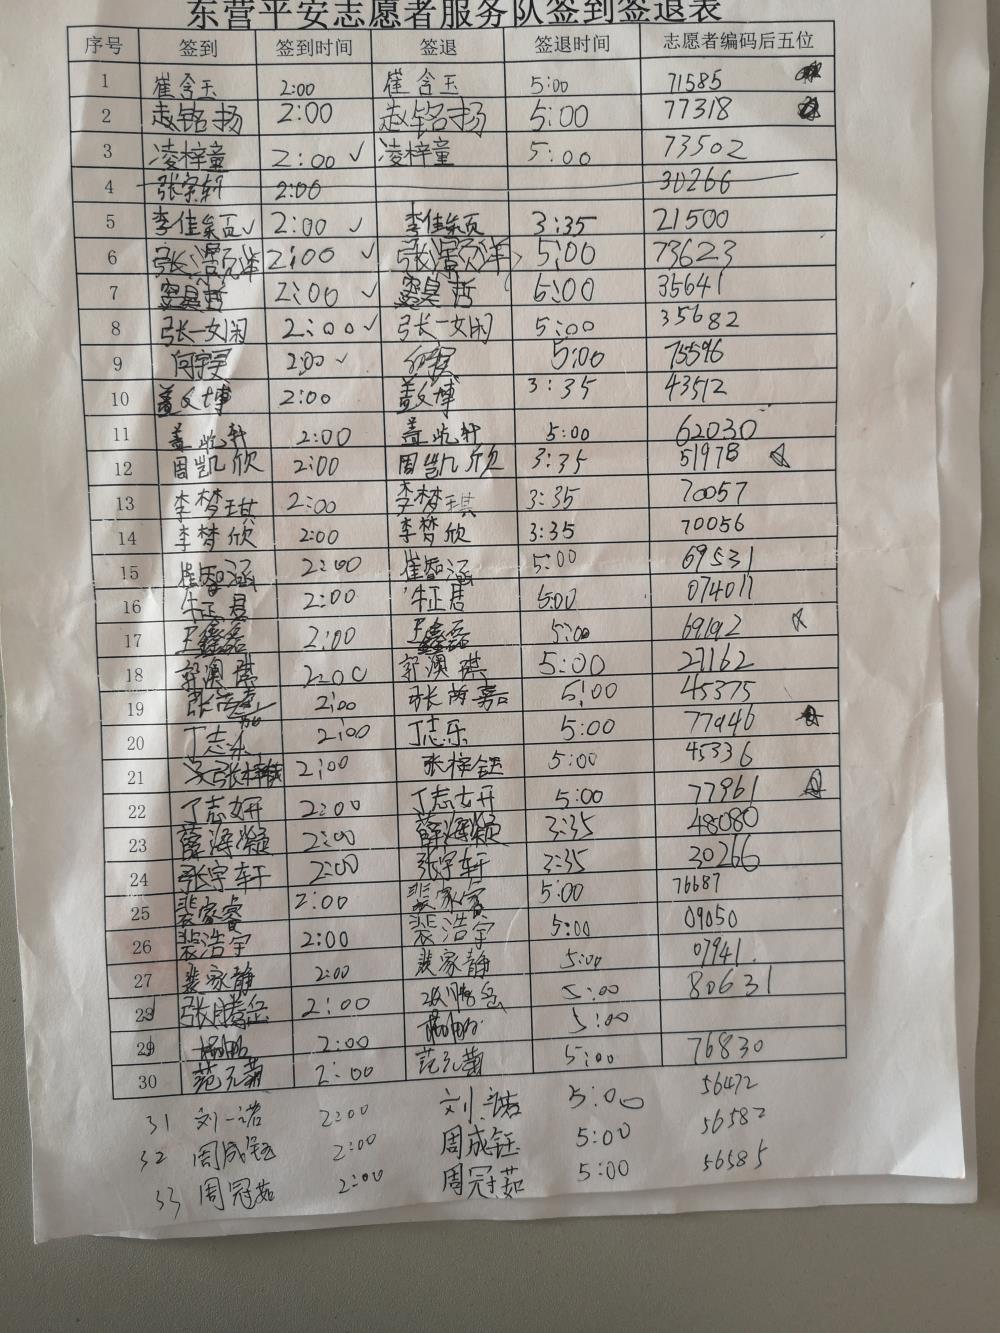 东营平安志愿者服务队签到签退表
序号 签到 签到时间 签退 签退时间 志愿者编码后五位
1 崔含玉 2:00 崔含玉 5:00 71585
2 赵铭扬 2:00 赵铭扬 5:00 77318
3 凌梓童 2:00 ✓ 凌梓童 5:00 73502
4 张宇轩 2:00 30266
5 李佳颖 ✓ 2:00 ✓ 李佳颖 3:35 21500
6 2:00 ✓ 5:00 73623
7 2:00 ✓ 5:00 35641
8 张一娴 2:00 ✓ 张一娴 5:00 35682
9 2:00 ✓ 5:00 75596
10 盖文博 2:00 盖文博 3:35 43512
11 盖屹轩 2:00 盖屹轩 5:00 62030
12 周凯欣 2:00 周凯欣 3:35 5197B
13 李梦琪 2:00 李梦琪 3:35 70057
14 李梦欣 2:00 李梦欣 3:35 70056
15 崔智涵 2:00 崔智涵 5:00 69531
16 牛正君 2:00 牛正君 5:00 074011
17 王鑫磊 2:00 王鑫磊 5:00 69192
18 郭澳琪 2:00 郭澳琪 5:00 27162
19 2:00 5:00 45375
20 丁志乐 2:00 丁志乐 5:00 77946
21 张梓钰 2:00 张梓钰 5:00 45336
22 丁志妍 2:00 丁志妍 5:00 77961
23 薛海凝 2:00 薛海凝 3:35 48080
24 张宇轩 2:00 张宇轩 3:35 30266
25 裴家睿 2:00 裴家睿 5:00 76687
26 裴浩宇 2:00 裴浩宇 5:00 09050
27 裴家静 2:00 裴家静 5:00 07941
28 张腾岳 2:00 张腾岳 5:00 80631
29 2:00 5:00
30 范元菊 2:00 范元菊 5:00 76830
31 刘一诺 2:00 刘一诺 5:00 56472
32 周成钰 2:00 周成钰 5:00 56582
33 周冠茹 2:00 周冠茹 5:00 56585